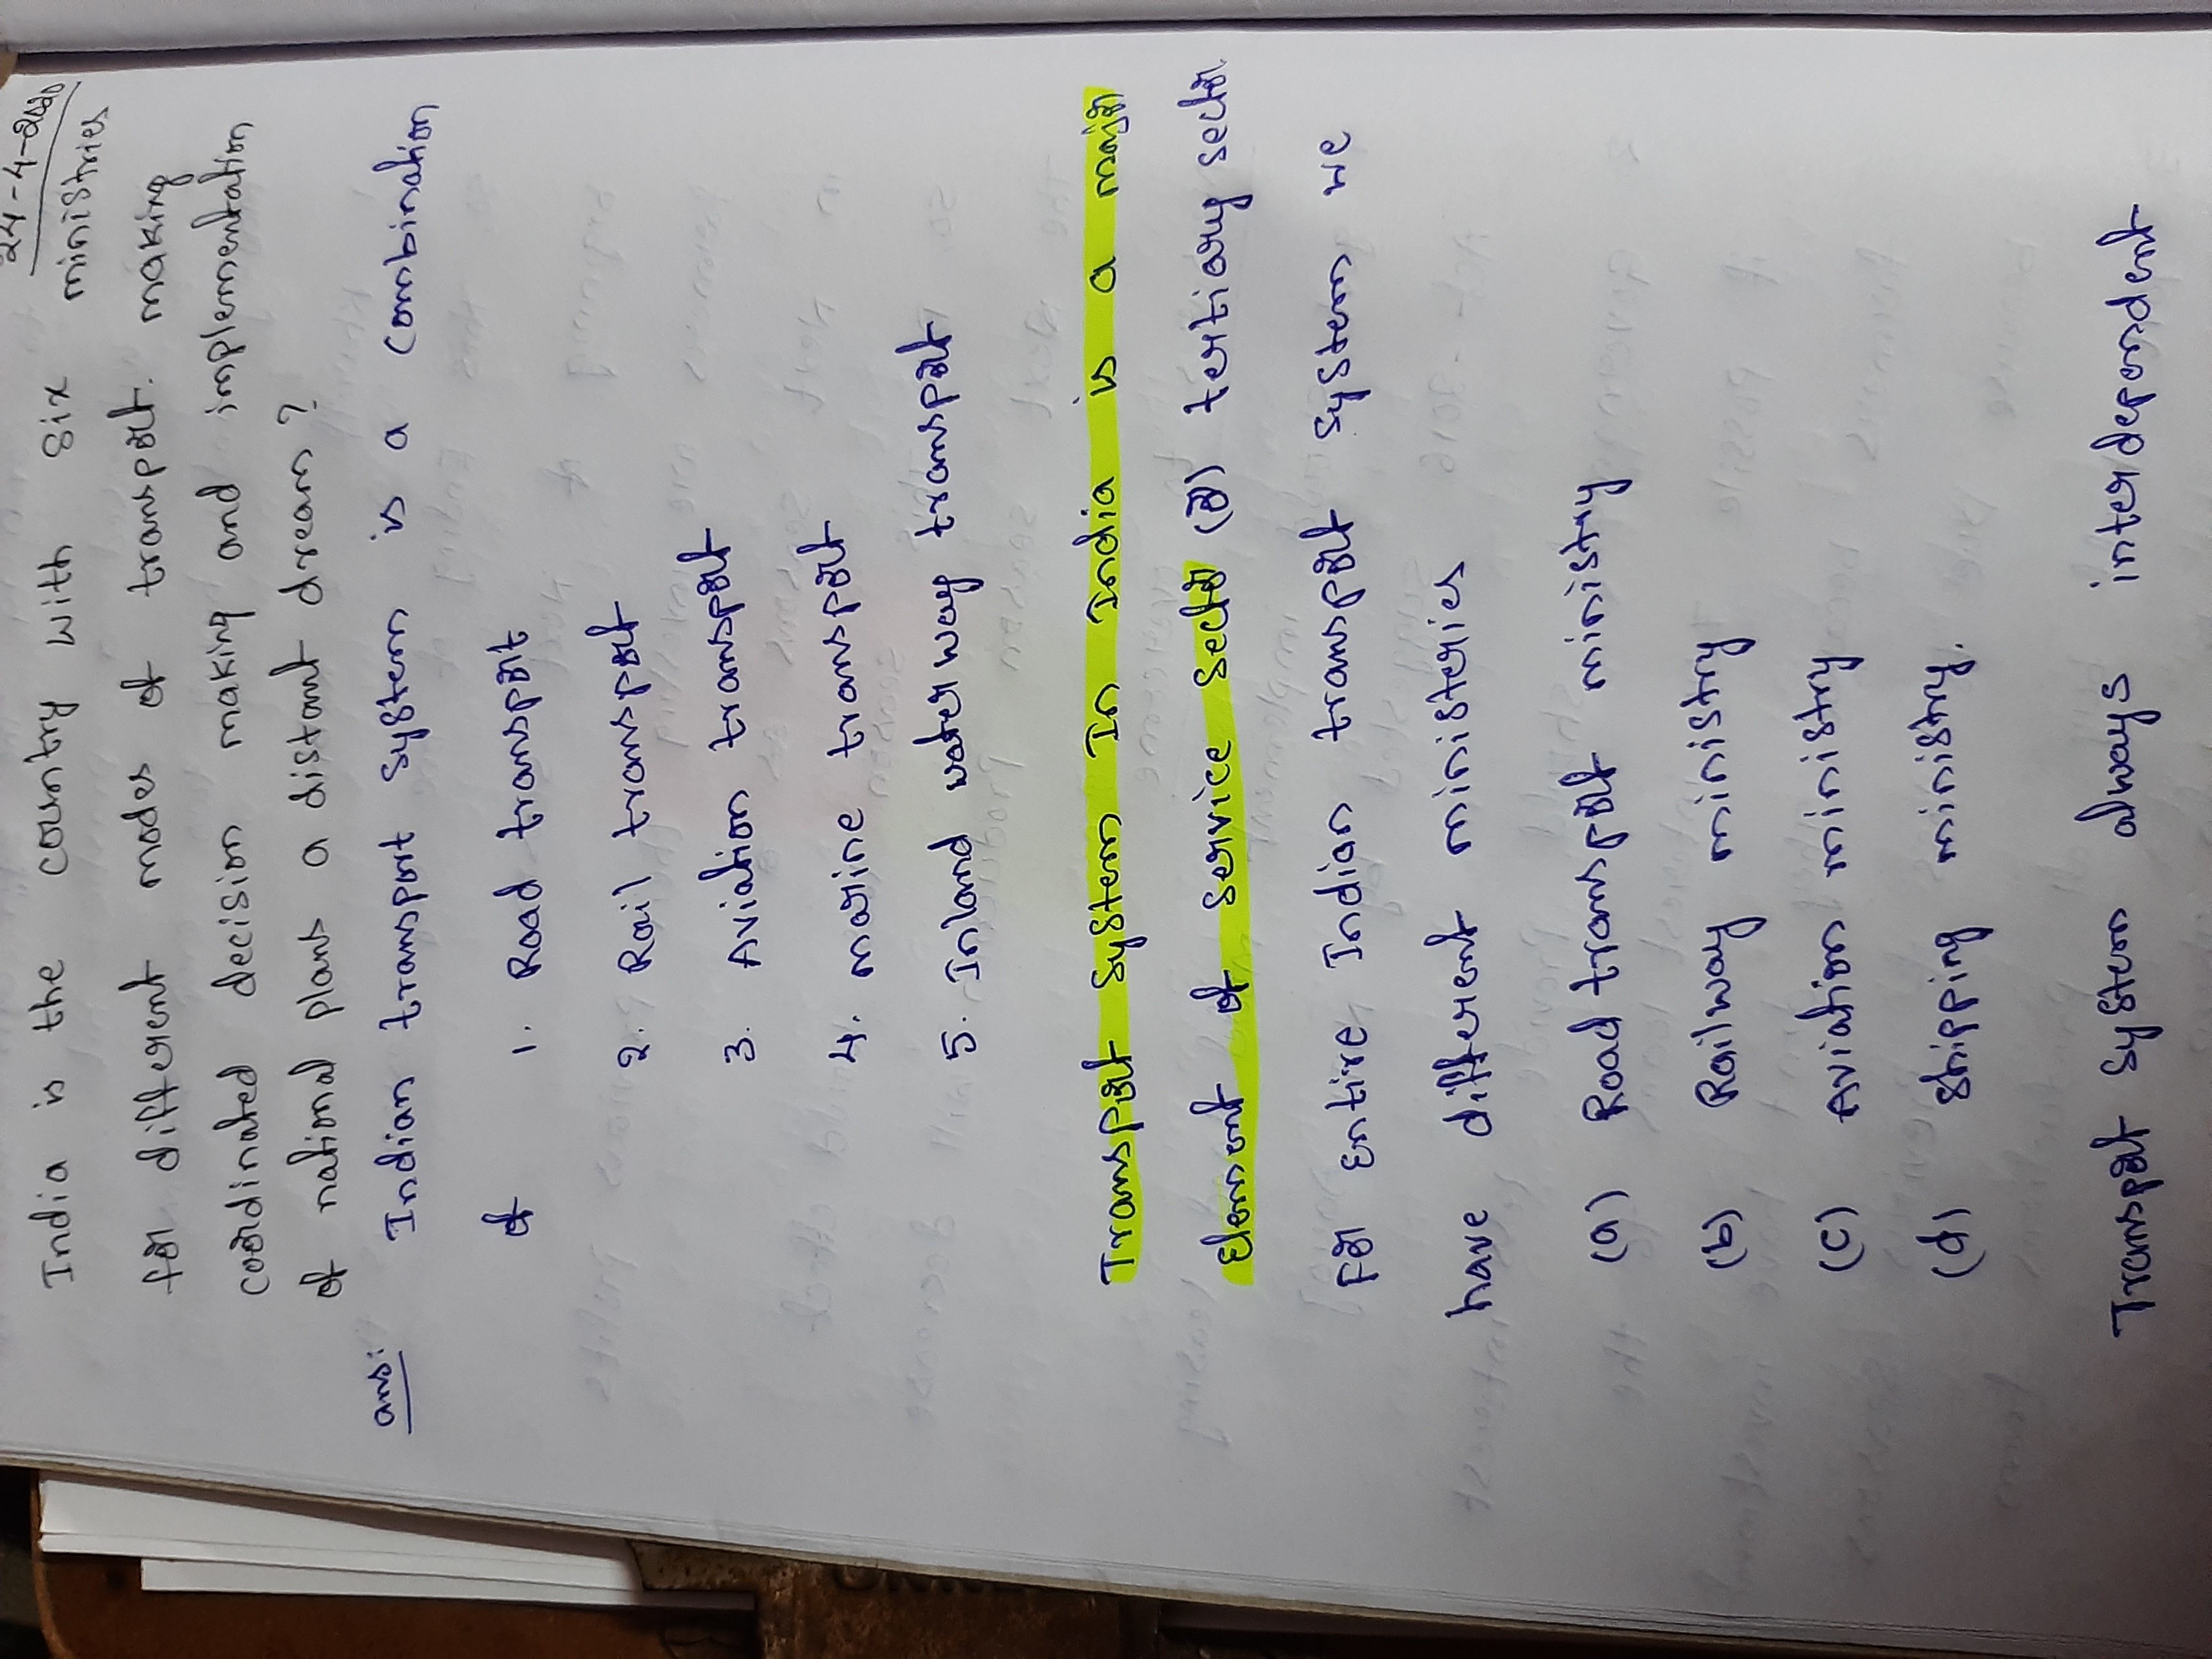 24-4-2020
India is the country with six ministries
for different modes of transport. making
coordinated decision making and implementation
of national plans a distant dream?
ans: Indian transport system is a combination
of
1. Road transport
2. Rail transport
3. Aviation transport
4. marine transport
5. Inland waterway transport
Transport system In India is a major
element of service sector (or) tertiary sector
For Entire Indian transport system we
have different ministeries
(a) Road transport ministry
(b) Railway ministry
(c) Aviation ministry
(d) Shipping ministry.
Transport system always interdependent